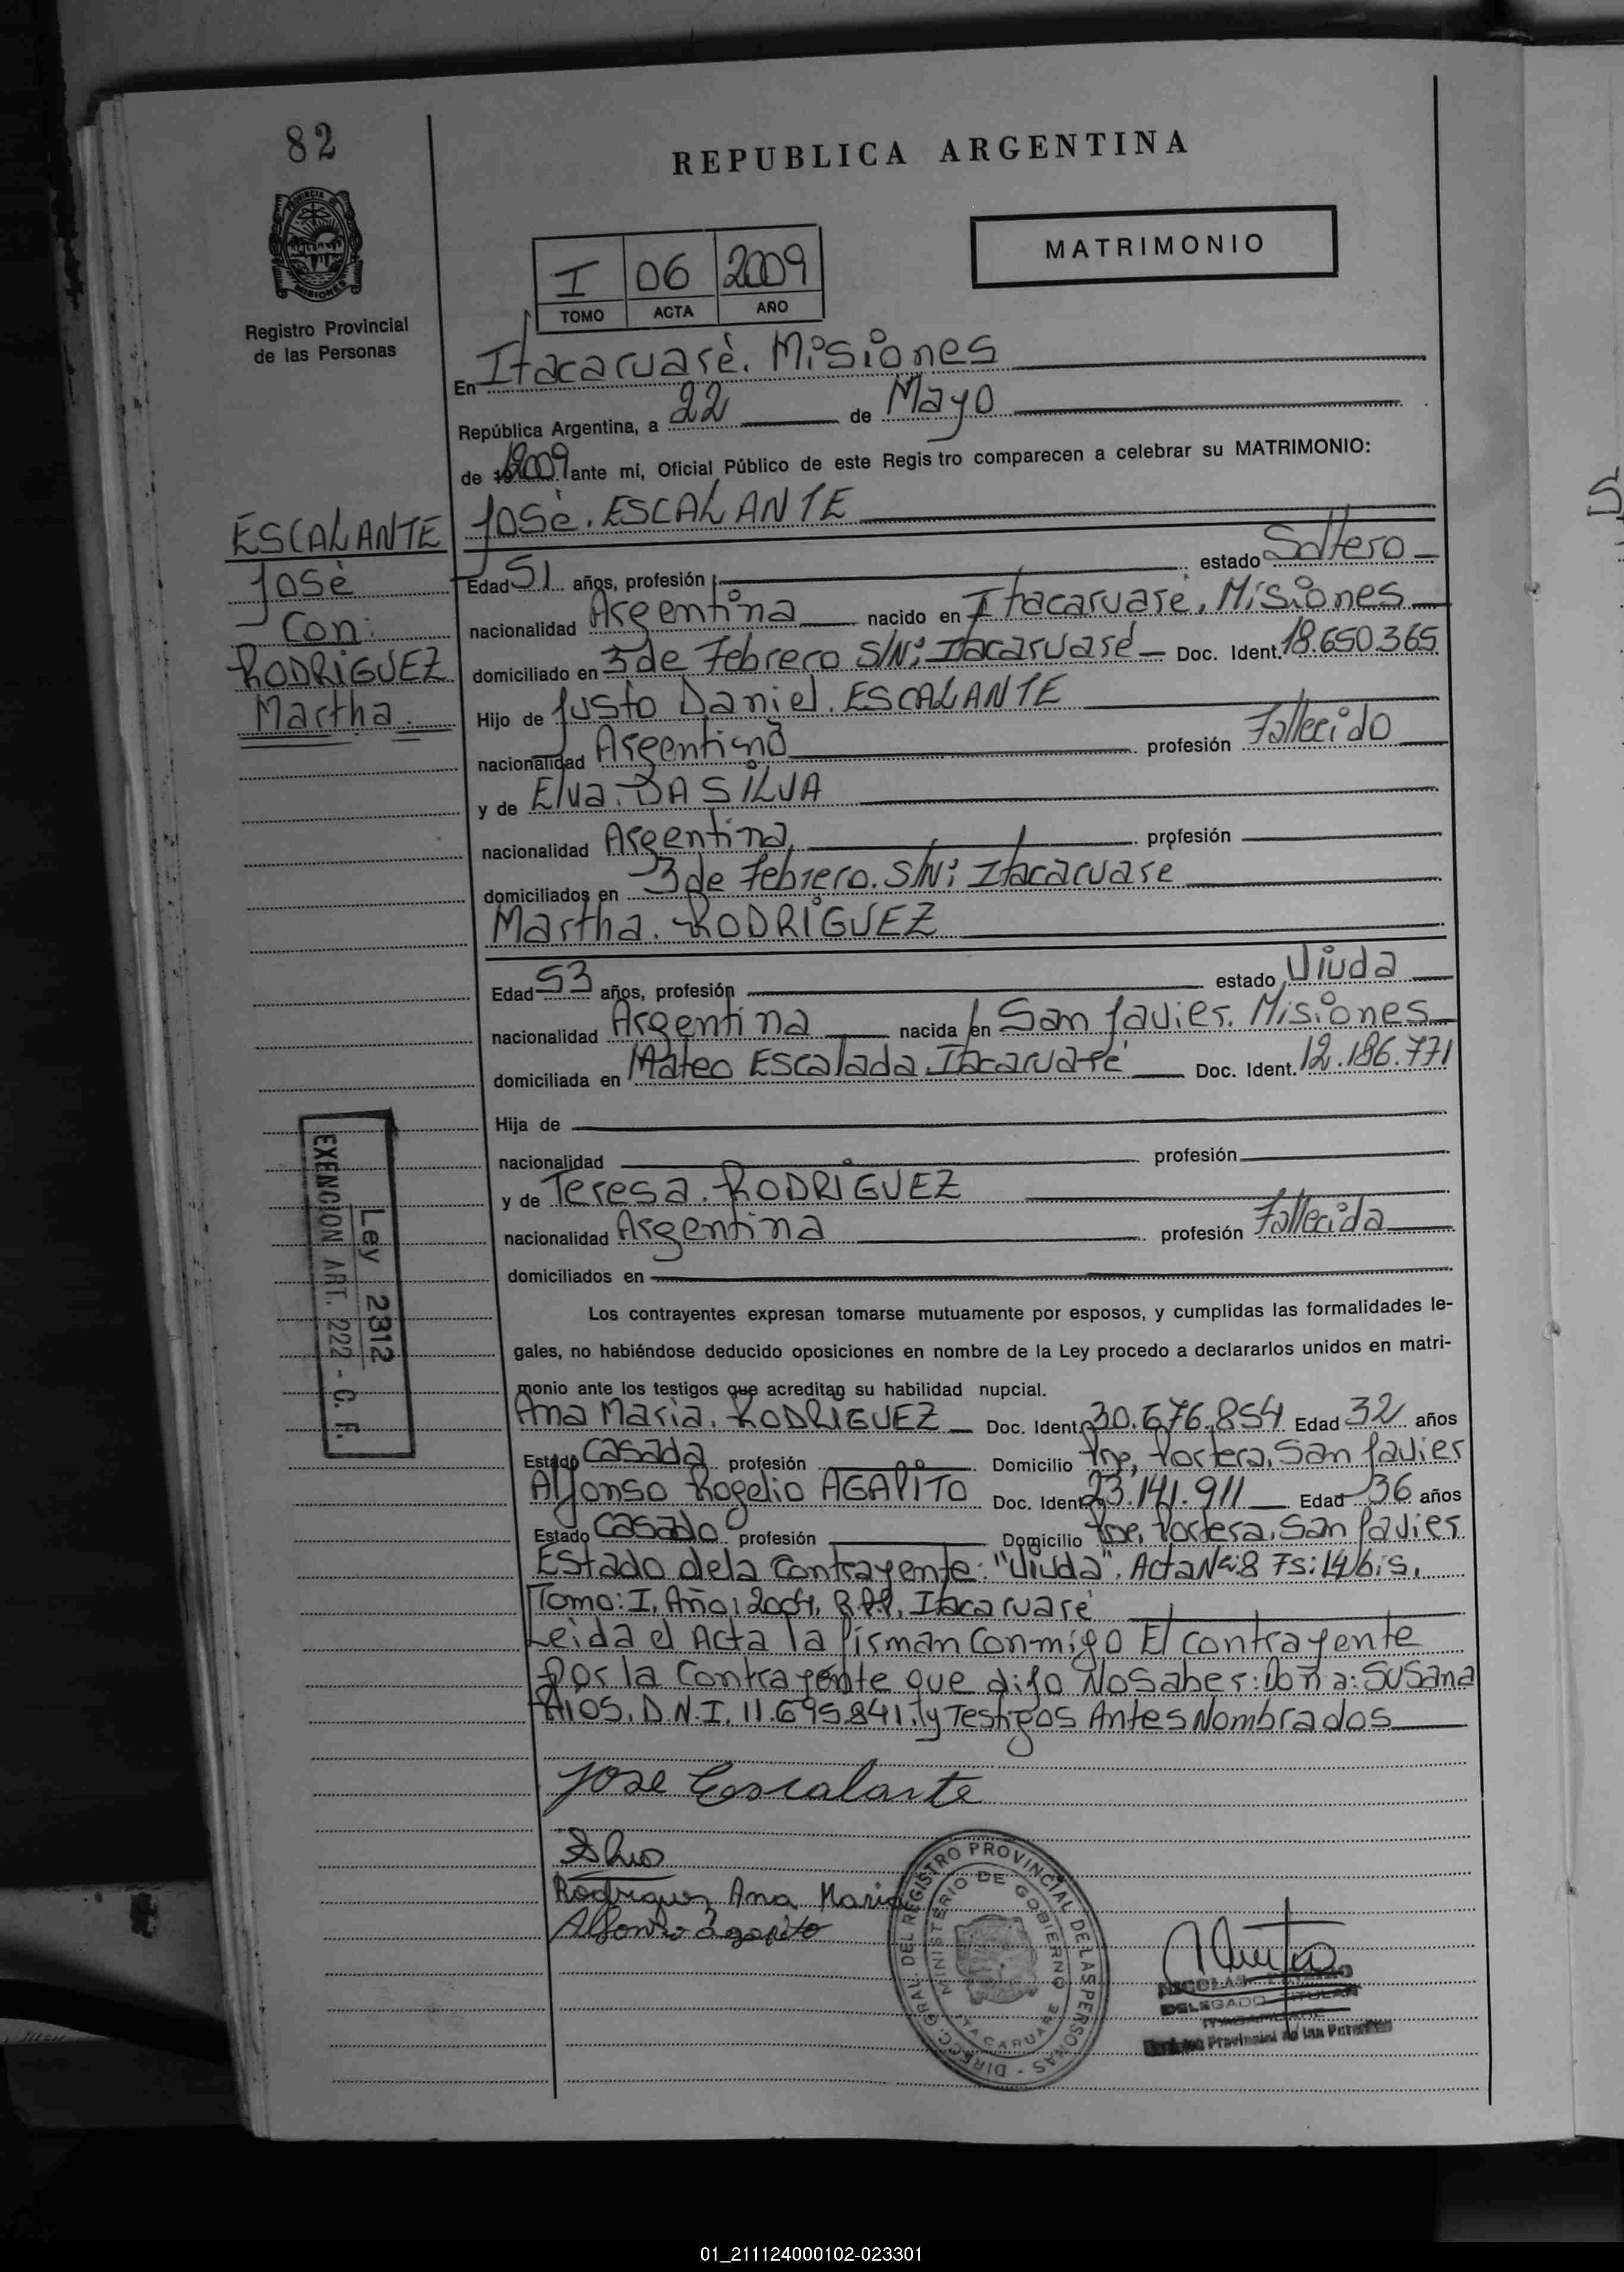 82
REPUBLICA ARGENTINA
PROVINCIA DE
MISIONES
Registro Provincial
de las Personas
I 06 2009
TOMO ACTA AÑO
MATRIMONIO
En Itacaruarè. Misiones
República Argentina, a 22 de Mayo
de 2009 ante mí, Oficial Público de este Regis tro comparecen a celebrar su MATRIMONIO:
Josè. ESCALANTE
ESCALANTE
Josè
Con:
RODRIGUEZ
Martha.
Edad 51 años, profesión estado Soltero
nacionalidad Argentina nacido en Itacaruaré, Misiones
domiciliado en 3 de Febrero S/N; Itacaruaré Doc. Ident. 18.650.365
Hijo de Justo Daniel. ESCALANTE
nacionalidad Argentino profesión Fallecido
y de Elva. DA SILVA
nacionalidad Argentina profesión
domiciliados en 3 de Febrero. S/N; Itacaruare
Martha. RODRIGUEZ
Edad 53 años, profesión estado Viuda
nacionalidad Argentina nacida en San Javier. Misiones
domiciliada en Mateo Escalada Itacaruaré Doc. Ident. 12.186.771
Hija de
nacionalidad profesión
y de Teresa. RODRIGUEZ
nacionalidad Argentina profesión Fallecida
domiciliados en
Ley 2312
EXENCION ART. 222 - C. F.
Los contrayentes expresan tomarse mutuamente por esposos, y cumplidas las formalidades le-
gales, no habiéndose deducido oposiciones en nombre de la Ley procedo a declararlos unidos en matri-
monio ante los testigos que acreditan su habilidad nupcial.
Ana Maria. RODRIGUEZ Doc. Ident. 30.676.854 Edad 32 años
Estado Casada profesión Domicilio Portera, San Javier
Alfonso Rogelio AGAPITO Doc. Ident. 23.141.911 Edad 36 años
Estado Casado profesión Domicilio Portera, San Javier
Estado dela Contrayente: "Viuda". Acta Nº:8 Fs: 14 bis.
Tomo: I, Año: 2004, R.P.P. Itacaruaré
Leida el Acta la firman Conmigo El contrayente
Por la Contrayente que dijo No Saber: Doña: Susana
RIOS. D.N.I. 11.695.841. y Testigos Antes Nombrados
Jose Escalante
Rodriguez Ana Maria
Alfonso Agapito
DIRECC. GRAL. DEL REGISTRO PROVINCIAL DE LAS PERSONAS -
MINISTERIO DE GOBIERNO
ITACARUARE
DELEGADO TITULAR
Provincial de las Personas
01_211124000102-023301